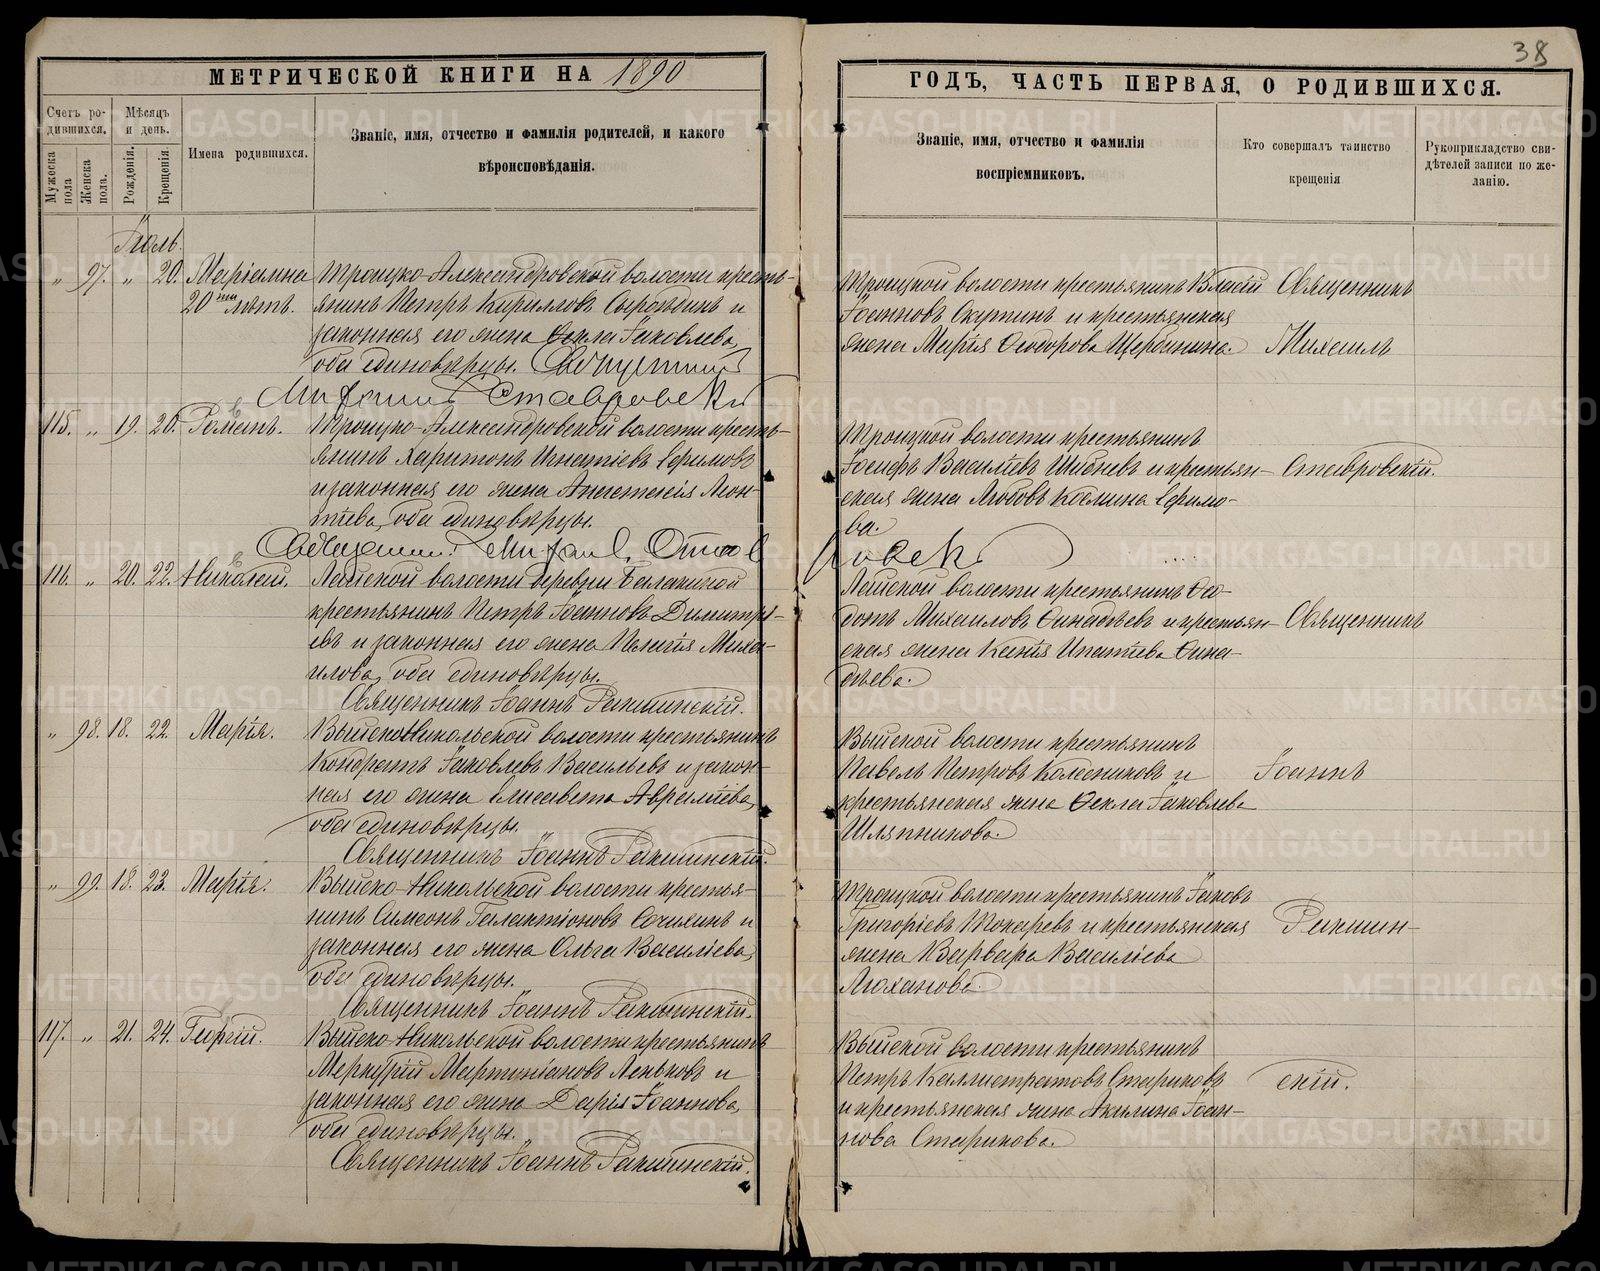 38
МЕТРИЧЕСКОЙ КНИГИ НА 1890
ГОДЪ, ЧАСТЬ ПЕРВАЯ, О РОДИВШИХСЯ.
Счетъ ро-
дившихся.
Мужеска
пола
Женска
пола.
Мѣсяцъ
и день.
Рождения.
Крещенія.
Имена родившихся.
Званіе, имя, отчество и фамилія родителей, и какого
вѣроисповѣданія.
Званіе, имя, отчество и фамилія
воспріемниковъ.
Кто совершалъ таинство
крещенія
Рукоприкладство сви-
дѣтелей записи по же-
ланію.
Іюль.
" 97. " 20. Маріамна
20ти лѣтъ.
Троицко-Александровской волости кресть-
янинъ Петръ Кирилловъ и
законная его жена Ѳекла Іаковлева,
оба единовѣрцы. Священникъ
Михаилъ Ставровскій
Троицкой волости крестьянинъ Власій
Іоанновъ Скутинъ и крестьянская
жена Марія Ѳеодорова Щербинина.
Священникъ
Михаилъ
115. " 19. 20. Романъ.
Троицко-Александровской волости кресть-
янинъ Харитонъ Игнатіевъ Ефимовъ
и законная его жена Анастасія Леон-
тіева, оба единовѣрцы.
Священникъ Михаилъ Ставровскій
Троицкой волости крестьянинъ
Іосифъ Василіевъ Шибневъ и крестьян-
ская жена Любовь Космина Ефимо-
ва.
Ставровскій.
116. " 20. 22. Николай.
Лайской волости деревни Балакиной
крестьянинъ Петръ Іоанновъ Димитрі-
евъ и законная его жена Пелагія Миха-
илова, оба единовѣрцы.
Священникъ Іоаннъ Ракшинскій.
Лайской волости крестьянинъ Ѳео-
дотъ Михаиловъ Ѳинадѣевъ и крестьян-
ская жена Ипатіева Ѳина-
дѣева.
Священникъ
" 98. 18. 22. Марія.
Выйско-Никольской волости крестьянинъ
Кондратъ Іаковлевъ Васильевъ и закон-
ная его жена Елисавета Авраміева,
оба единовѣрцы.
Священникъ Іоаннъ Ракшинскій.
Выйской волости крестьянинъ
Павелъ Петровъ Колесниковъ и
крестьянская жена Ѳекла Іаковлева
Шляпникова.
Іоаннъ
" 99. 18. 23. Марія.
Выйско-Никольской волости крестья-
нинъ Симеонъ Галактіоновъ и
законная его жена Ольга Василіева,
оба единовѣрцы.
Священникъ Іоаннъ Ракшинскій.
Троицкой волости крестьянинъ Іаковъ
Григоріевъ Токаревъ и крестьянская
жена Варвара Василіева
Люханова.
Ракшин-
117. " 21. 24. Георгій.
Выйско-Никольской волости крестьянинъ
Меркурій Мартиніановъ Леньковъ и
законная его жена Дарія Іоаннова,
оба единовѣрцы.
Священникъ Іоаннъ Ракшинскій.
Выйской волости крестьянинъ
Петръ Каллистратовъ Стариковъ
и крестьянская жена Акилина Іоан-
нова Старикова.
скій.
METRIKI.GASO-URAL.RU